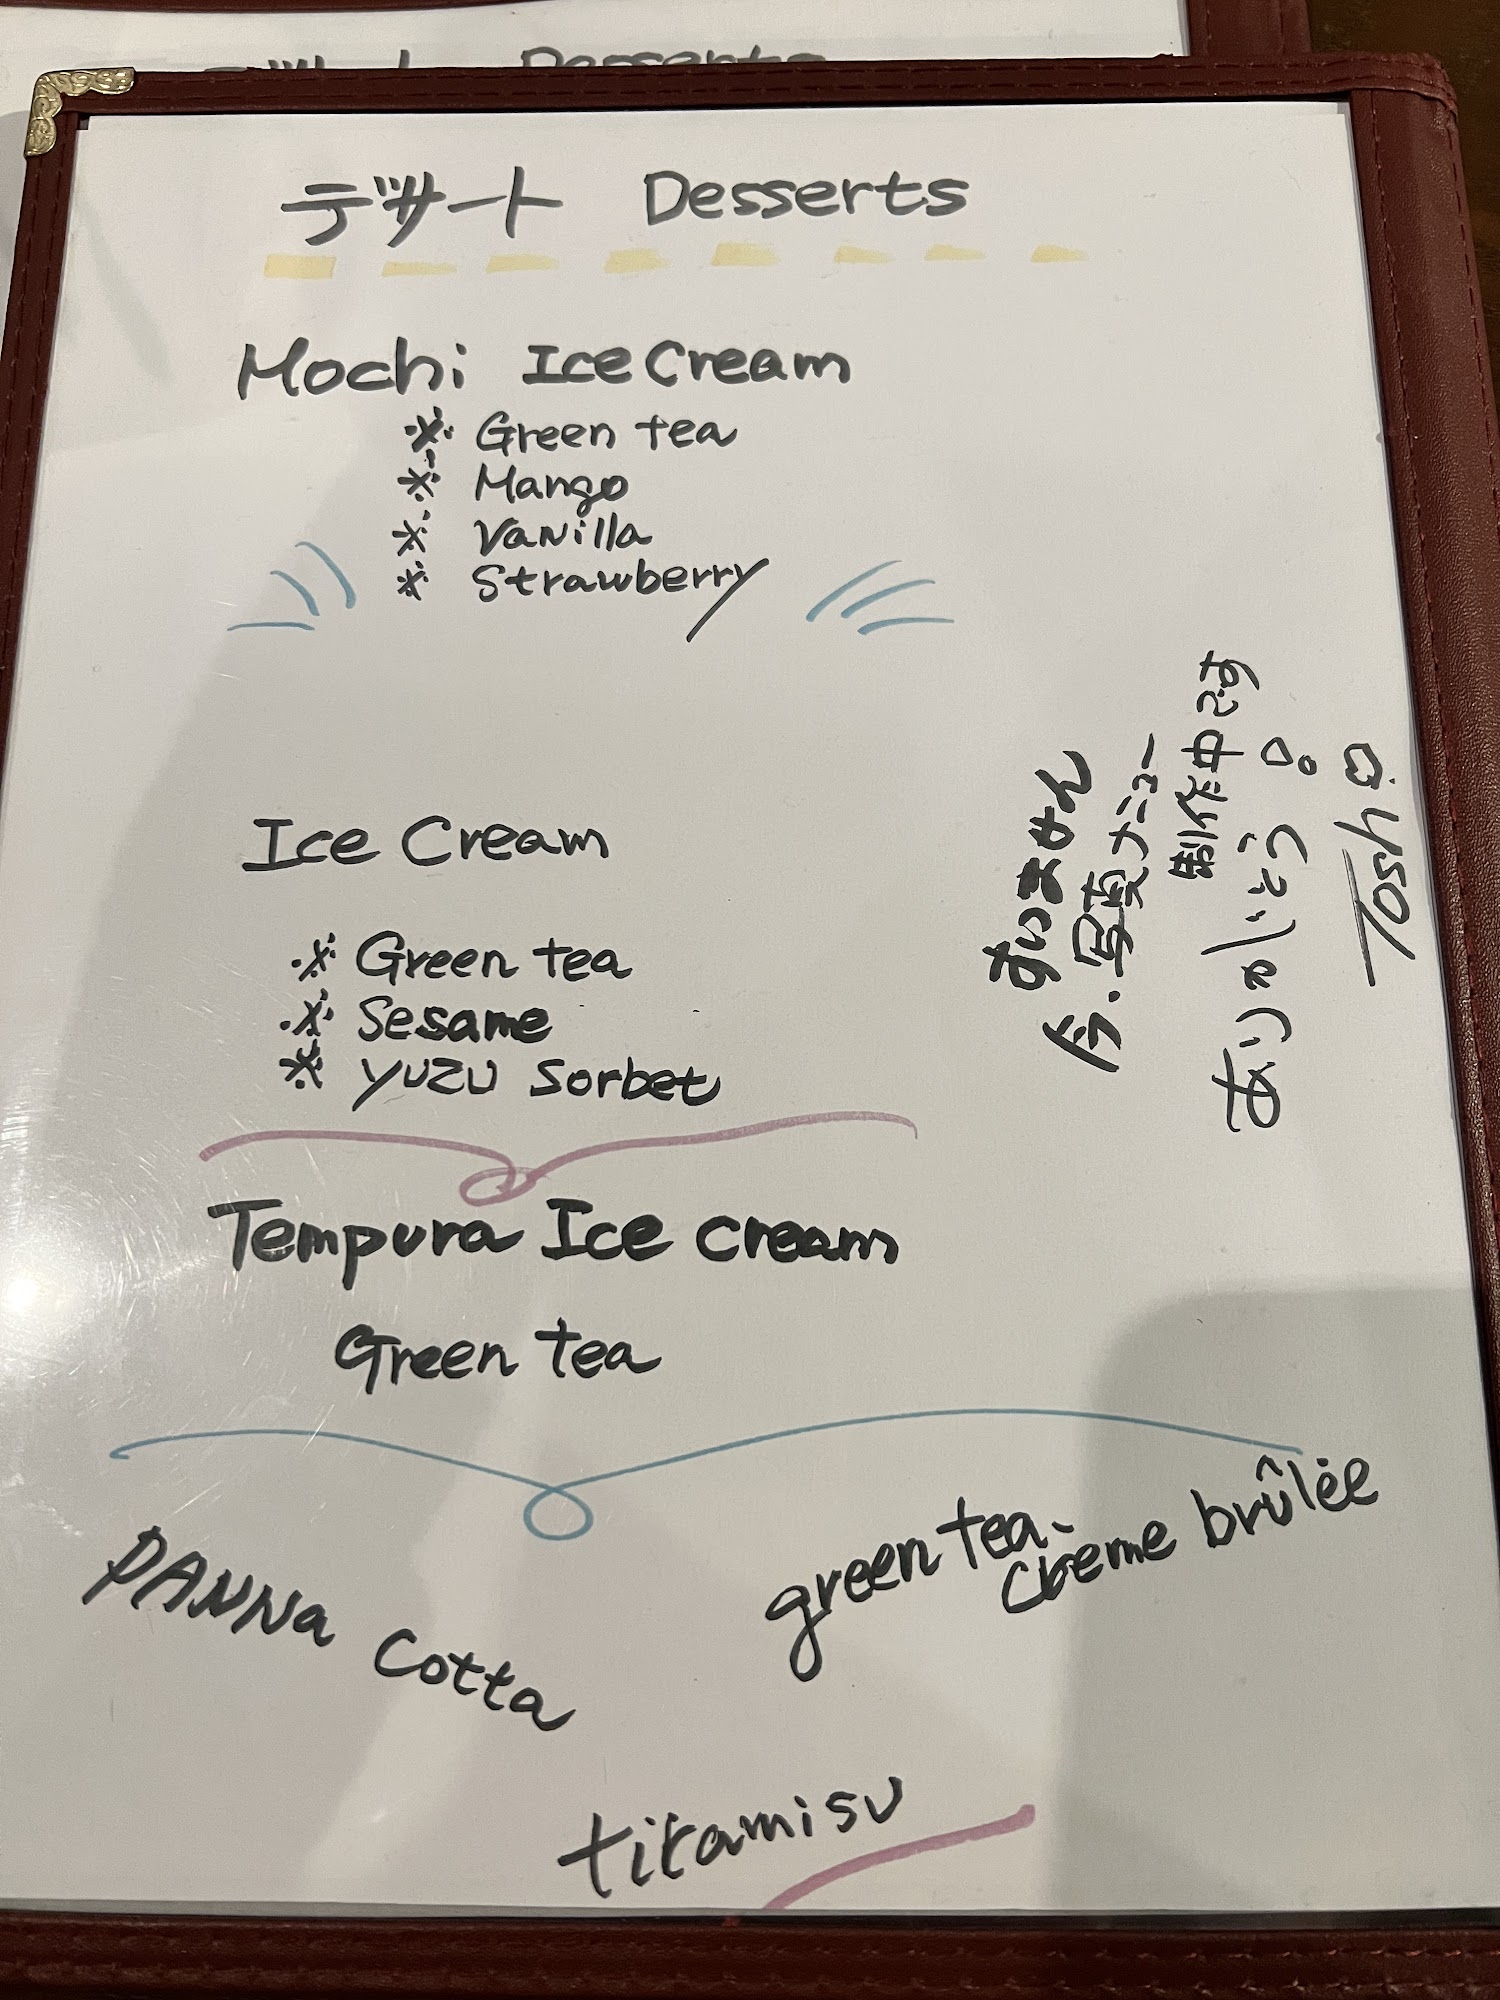 デザート Desserts
Mochi Ice Cream
※ Green tea
※ Mango
※ Vanilla
※ Strawberry
Ice Cream
※ Green tea
※ Sesame
※ YUZU Sorbet
Tempura Ice cream
Green tea
PANNa cotta
green tea
crème brûlée
tiramisu
すいません
今.写真メニュー
制作中です
ありがとう
Toshi
Desserts